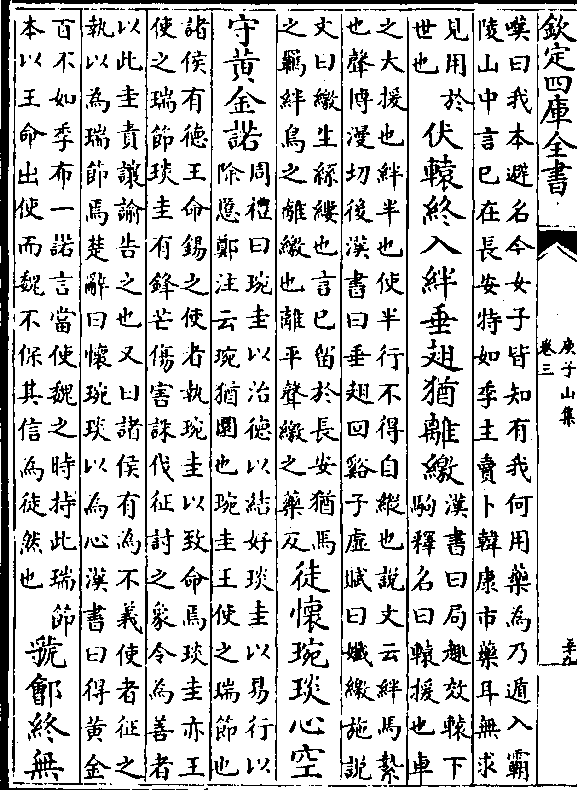 欽定四庫全書
嘆曰我本避名今女子皆知有我何用藥為乃遁入霸
陵山中言已在長安特如季主賣卜韓康市藥耳無求
見用於
世也
伏轅終入絆垂翅猶離繳
漢書曰局趣效轅下
駒釋名曰轅援也車
之大援也絆半也使半行不得自縱也説文云絆馬縶
也聲博漫切後漢書曰垂翅囘谿子虛賦曰孅繳施説
文曰繳生絲縷也言已留於長安猶馬
之羈絆鳥之離繳也離平聲繳之藥反
徒懷琬琰心空
守黄金諾
周禮曰琬圭以治德以結好琰圭以易行以
除慝鄭注云琬猶圜也琬圭王使之瑞節也
諸侯有德王命錫之使者執琬圭以致命焉琰圭亦王
使之瑞節琰圭有鋒芒傷害誅伐征討之象令為善者
以此圭責讓諭告之也又曰諸侯有為不義使者征之
執以為瑞節焉楚辭曰懷琬琰以為心漢書曰得黄金
百不如季布一諾言當使魏之時持此瑞節
本以王命出使而魏不保其信為徒然也
虢鄶終無
庾子山集
卷三